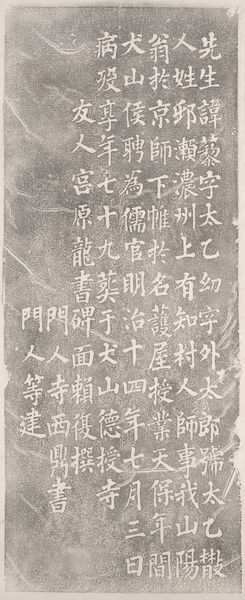 先生諱藜字太乙幼字外太郎號太乙散
人姓邨瀨濃州上有知村人師事我山陽
翁於京師下帷於名護屋授業天保年間
犬山侯聘為儒官明治十四年七月三日
病歿享年七十九葬于犬山德授寺
友人宮原龍書碑面賴復撰
門人寺西鼎書
門人等建